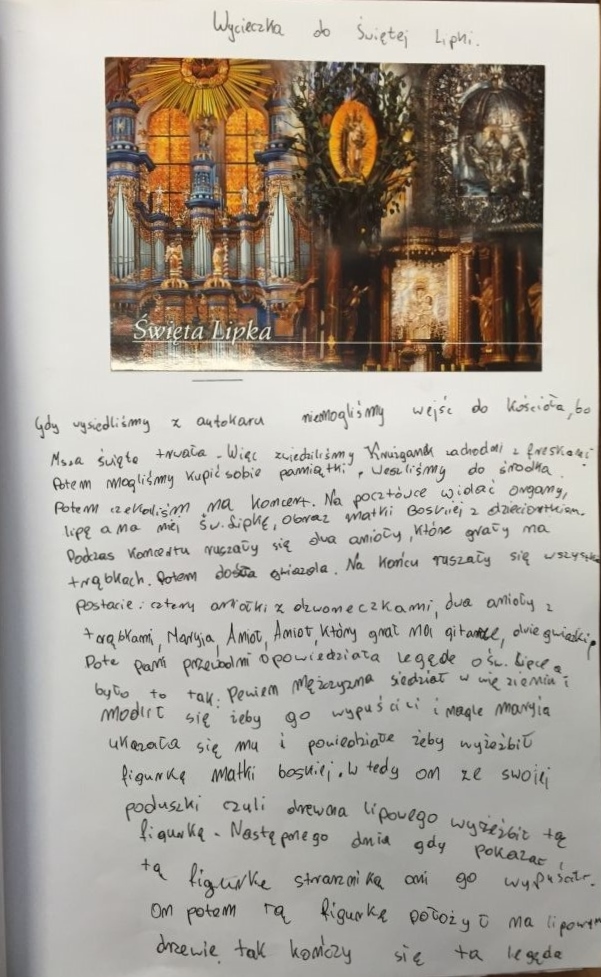 Wycieczka do Świętej Lipki.
Święta Lipka
Gdy wysiedliśmy z autokaru niemogliśmy wejść do kościoła, bo
Msza święta trwała. Więc zwiedziliśmy Krużganek zachodni z freskami
Potem mogliśmy kupić sobie pamiątki. Weszliśmy do środka.
Potem czekaliśm na koncert. Na pocztówce widać organy,
lipę a na niej św. Lipkę, obraz matki Boskiej z dzieciątkiem.
Podczas koncertu ruszały się dwa anioły, które grały na
trąbkach. Potem doszła gwiazda. Na końcu ruszały się wszystkie
postacie: cztery aniołki z dzwoneczkami, dwa anioły z
trąbkami, Maryja, Anioł, Anioł, który grał na gitarze, dwie gwiazdki
Pote pani przewodni opowiedziała legędę o św. Lipce a
było to tak: Pewien mężczyzna siedział w więzieniu i
modlił się żeby go wypuścili i nagle maryja
ukazała się mu i powiedziała żeby wyżeźbił
figurkę matki boskiej. Wtedy on ze swojej
poduszki czyli drewna lipowego wyżeźbił tą
figurkę. Następnego dnia gdy pokazał
tą figurkę strazniką oni go wypuścili.
On potem tą figurkę położył na lipowym
drzewie tak kończy się ta legęda